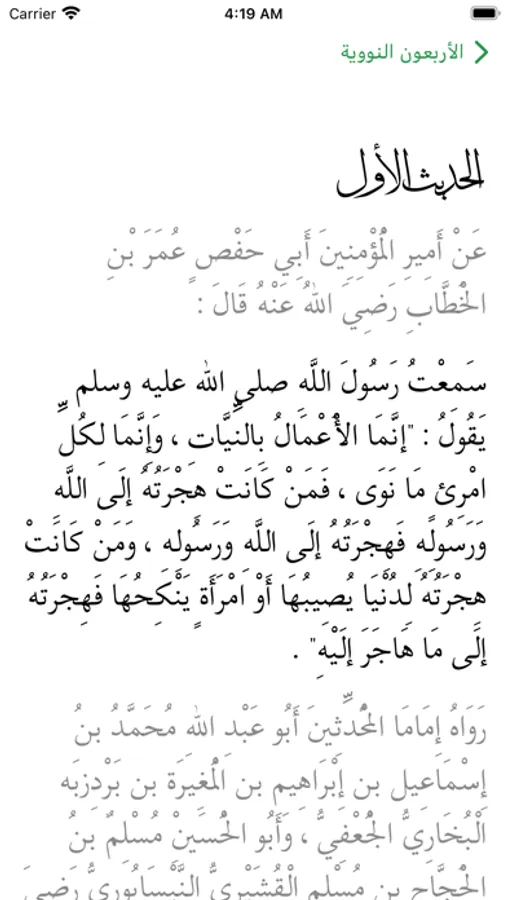 Carrier 4:19 AM
الأربعون النووية
الحديث الأول
عَنْ أَمِيرِ الْمُؤْمِنِينَ أَبِي حَفْصٍ عُمَرَ بْنِ
الْخَطَّابِ رَضِيَ اللهُ عَنْهُ قَالَ :
سَمِعْتُ رَسُولَ اللَّهِ صلى الله عليه وسلم
يَقُولُ : "إِنَّمَا الأَعْمَالُ بِالنِّيَّاتِ ، وَإِنَّمَا لِكُلِّ
امْرِئٍ مَا نَوَى ، فَمَنْ كَانَتْ هِجْرَتُهُ إِلَى اللَّهِ
وَرَسُولِهِ فَهِجْرَتُهُ إِلَى اللَّهِ وَرَسُولِهِ ، وَمَنْ كَانَتْ
هِجْرَتُهُ لِدُنْيَا يُصِيبُهَا أَوْ امْرَأَةٍ يَنْكِحُهَا فَهِجْرَتُهُ
إِلَى مَا هَاجَرَ إِلَيْهِ" .
رَوَاهُ إِمَامَا الْمُحَدِّثِينَ أَبُو عَبْدِ اللهِ مُحَمَّدُ بنُ
إِسْمَاعِيل بن إِبْرَاهِيم بن الْمُغِيرَة بن بَرْدِزبَه
الْبُخَارِيُّ الْجُعْفِيُّ ، وَأَبُو الْحُسَيْنِ مُسْلِمٌ بنُ
الْحَجَّاجِ بن مُسْلِم الْقُشَيْرِيُّ النَّيْسَابُورِيُّ رَضِيَ